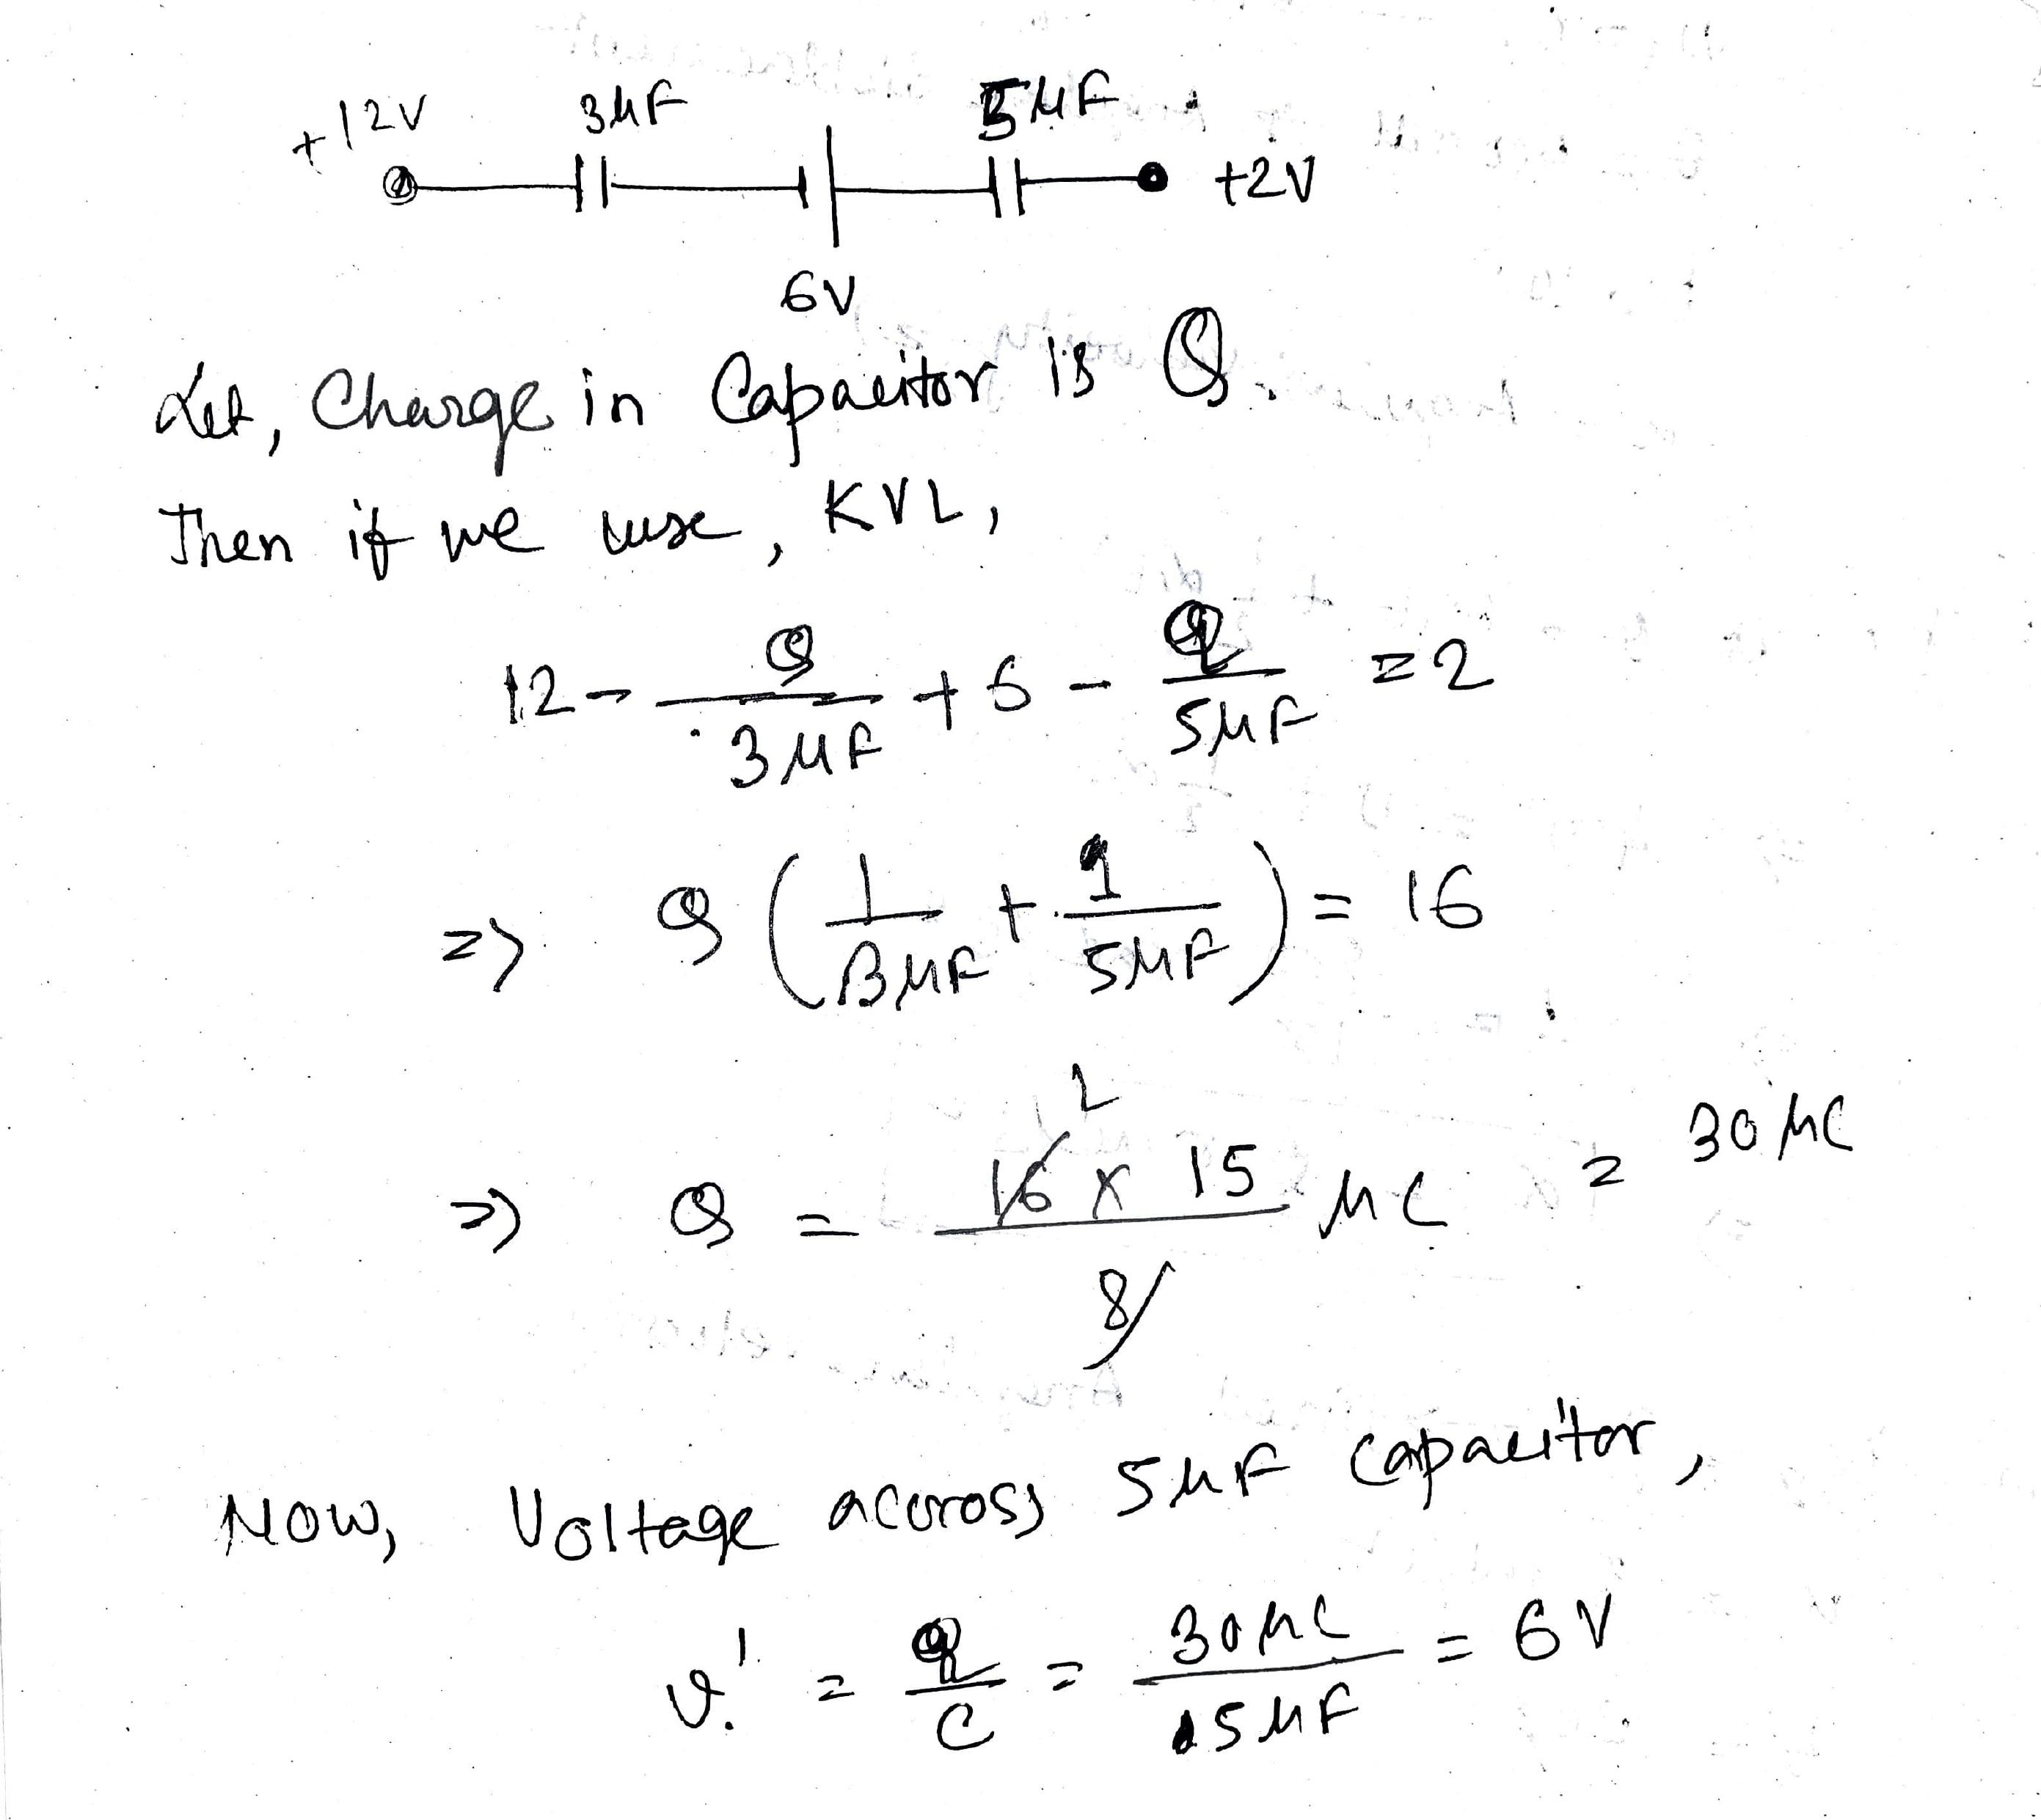 +12V 3μF 5μF +2V
6V
Let, Charge in Capacitor is Q.
Then if we use, KVL,
12 - Q/3μF + 6 - Q/5μF = 2
=> Q (1/3μF + 1/5μF) = 16
=> Q = 16 x 15 / 8 μC = 30 μC
2
Now, Voltage accross 5μF capacitor,
v' = Q/C = 30μC/5μF = 6V